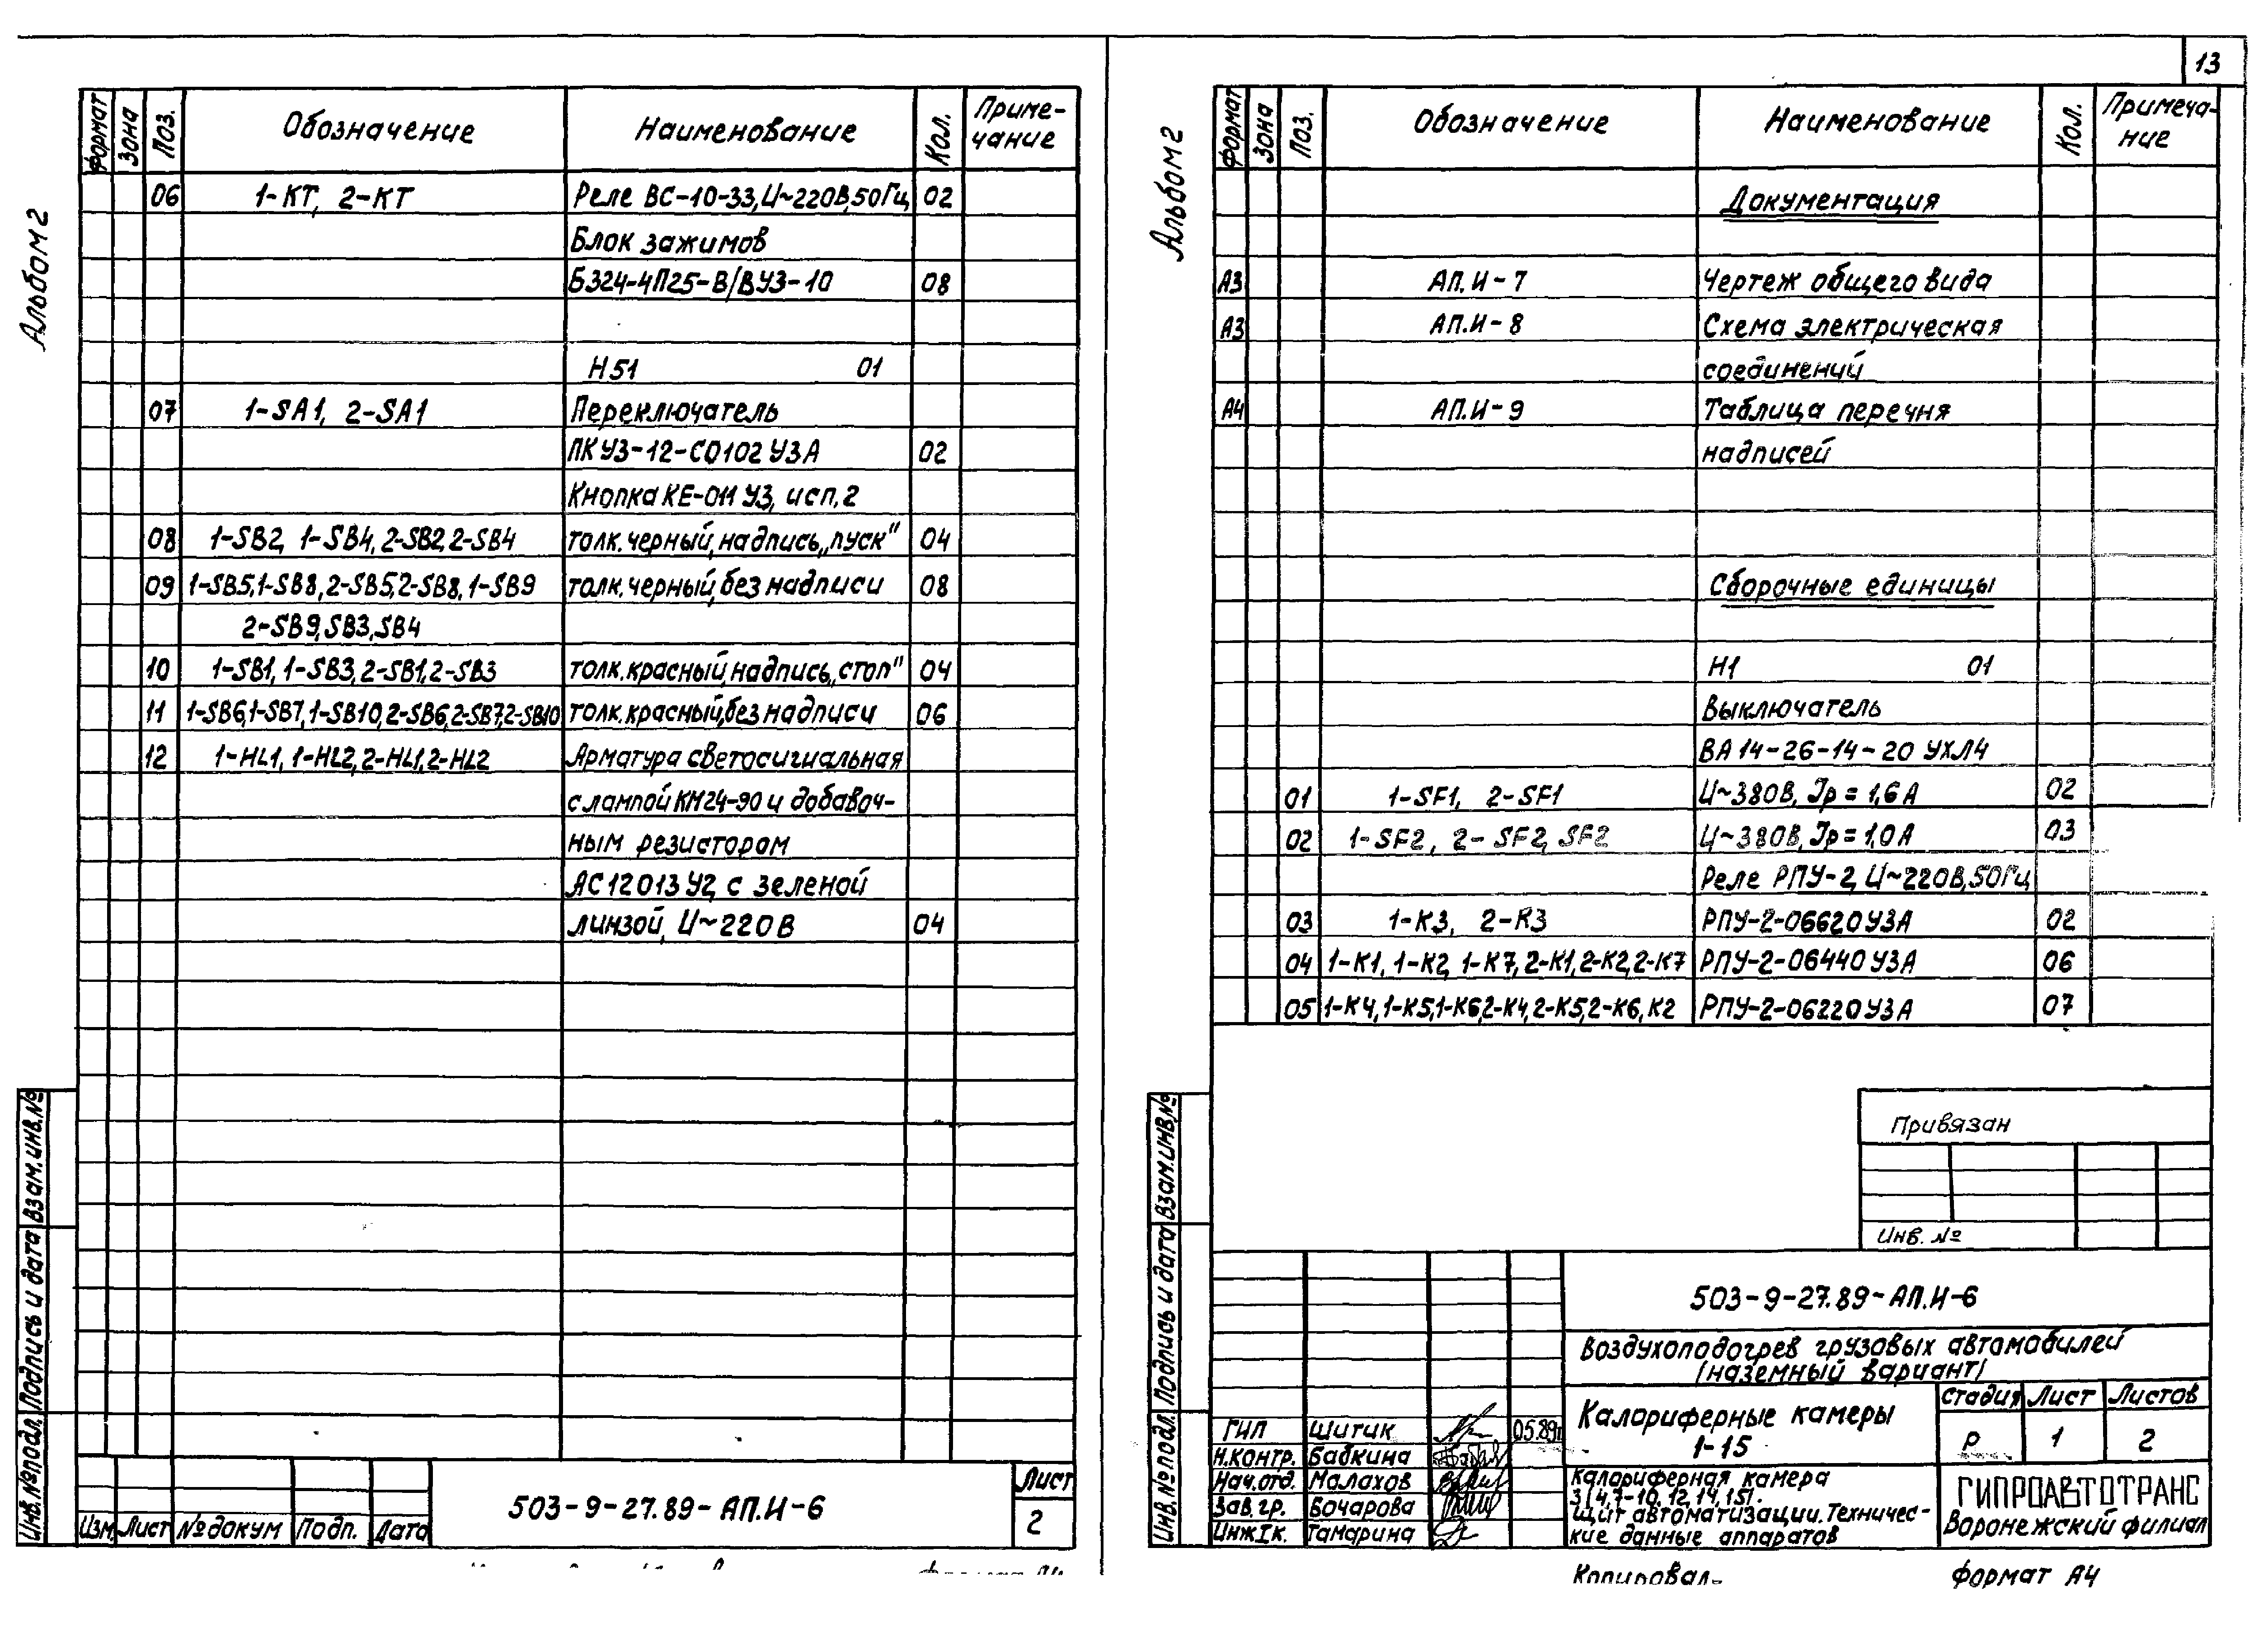 Альбом 2
Формат Зона Поз. Обозначение Наименование Кол. Приме-
чание
06 1-КТ, 2-КТ Реле ВС-10-33, U~220В, 50Гц 02
Блок зажимов
Б324-4П25-В/ВУ3-10 08
Н51 01
07 1-SA1, 2-SA1 Переключатель
ПКУ3-12-С0102 У3А 02
Кнопка КЕ-011 У3, исп. 2
08 1-SB2, 1-SB4, 2-SB2, 2-SB4 толк. черный, надпись „пуск" 04
09 1-SB5, 1-SB8, 2-SB5, 2-SB8, 1-SB9 толк. черный, без надписи 08
2-SB9, SB3, SB4
10 1-SB1, 1-SB3, 2-SB1, 2-SB3 толк. красный, надпись „стоп" 04
11 1-SB6, 1-SB7, 1-SB10, 2-SB6, 2-SB7, 2-SB10 толк. красный, без надписи 06
12 1-HL1, 1-HL2, 2-HL1, 2-HL2 Арматура светосигнальная
с лампой КМ24-90 и добавоч-
ным резистором
АС12013У2, с зеленой
линзой, U~220В 04
Инв. № подл. Подпись и дата Взам. инв. №
Изм. Лист № докум Подп. Дата
503-9-27.89-АП.И-6
Лист
2
13
Альбом 2
Формат Зона Поз. Обозначение Наименование Кол. Примеча-
ние
Документация
А3 АП.И-7 Чертеж общего вида
А3 АП.И-8 Схема электрическая
соединений
А4 АП.И-9 Таблица перечня
надписей
Сборочные единицы
Н1 01
Выключатель
ВА14-26-14-20 УХЛ4
01 1-SF1, 2-SF1 U~380В, Iр=1,6А 02
02 1-SF2, 2-SF2, SF2 U~380В, Iр=1,0А 03
Реле РПУ-2, U~220В, 50Гц
03 1-К3, 2-К3 РПУ-2-06620У3А 02
04 1-К1, 1-К2, 1-К7, 2-К1, 2-К2, 2-К7 РПУ-2-06440У3А 06
05 1-К4, 1-К5, 1-К6, 2-К4, 2-К5, 2-К6, К2 РПУ-2-06220У3А 07
Привязан
Инв. №
Инв. № подл. Подпись и дата Взам. инв. №
503-9-27.89-АП.И-6
Воздухоподогрев грузовых автомобилей
/наземный вариант/
Калориферные камеры
1-15
Стадия Лист Листов
Р 1 2
ГИП Шитик 05.89г
Н.контр. Бабкина
Нач.отд. Малахов
Зав.гр. Бочарова
Инж.Iк. Тамарина
Калориферная камера
3/4, 7-10, 12, 14, 15/.
Щит автоматизации. Техничес-
кие данные аппаратов
ГИПРОАВТОТРАНС
Воронежский филиал
Копировал-
формат А4